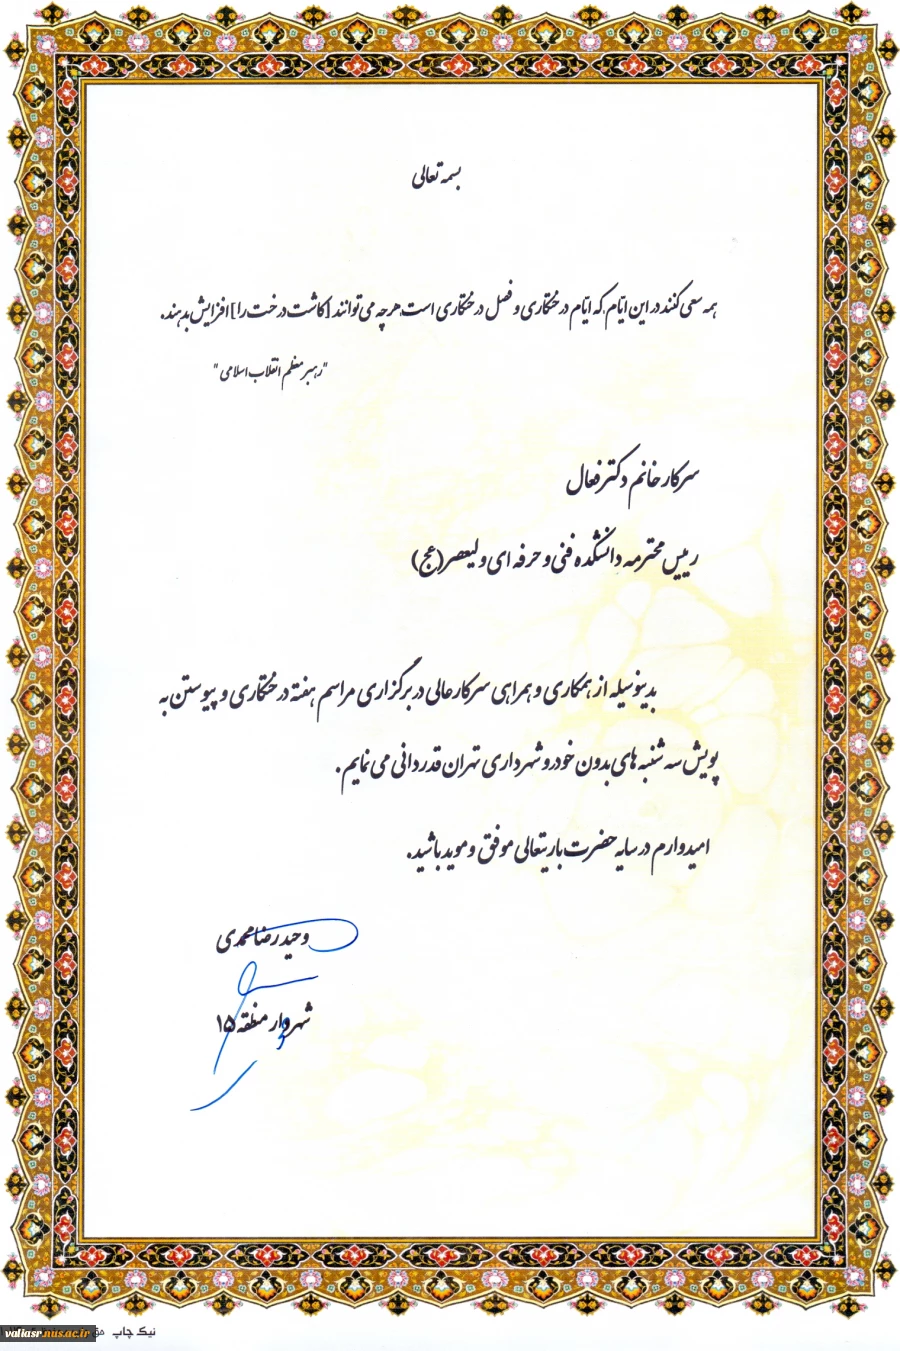 بسمه تعالی
همه سعی کنند در این ایّام که ایّام درختکاری و فصل درختکاری است هرچه می توانند [کاشت درخت را] افزایش بدهند.
"رهبر معظم انقلاب اسلامی"
سرکار خانم دکتر فعال
رییس محترمه دانشکده فنی و حرفه ای ولیعصر(عج)
بدینوسیله از همکاری و همراهی سرکارعالی در برگزاری مراسم هفته درختکاری و پیوستن به
پویش سه شنبه های بدون خودرو شهرداری تهران قدردانی می نمایم.
امیدوارم در سایه حضرت باریتعالی موفق و موید باشید.
وحید رضا محمدی
شهردار منطقه ۱۵
نیک چاپ
valiasr.nus.ac.ir